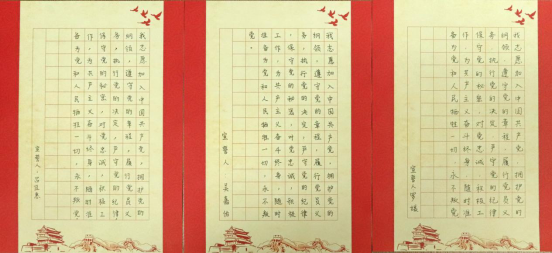 我志愿加入中国共产党，拥护党的
纲领，遵守党的章程，履行党员义
务，执行党的决定，严守党的纪律
保守党的秘密，对党忠诚，积极工
作，为共产主义奋斗终身，随时准
备为党和人民牺牲一切，永不叛党
宣誓人：
我志愿加入中国共产党，拥护党的
纲领，遵守党的章程，履行党员义
务，执行党的决定，严守党的纪律
，保守党的秘密，对党忠诚，积极
工作，为共产主义奋斗终身，随时
准备为党和人民牺牲一切，永不叛
党。
宣誓人
我志愿加入中国共产党，拥护党的
纲领，遵守党的章程，履行党员义
务，执行党的决定，严守党的纪律
保守党的秘密，对党忠诚，积极工
作，为共产主义奋斗终身，随时准
备为党和人民牺牲一切，永不叛党
宣誓人